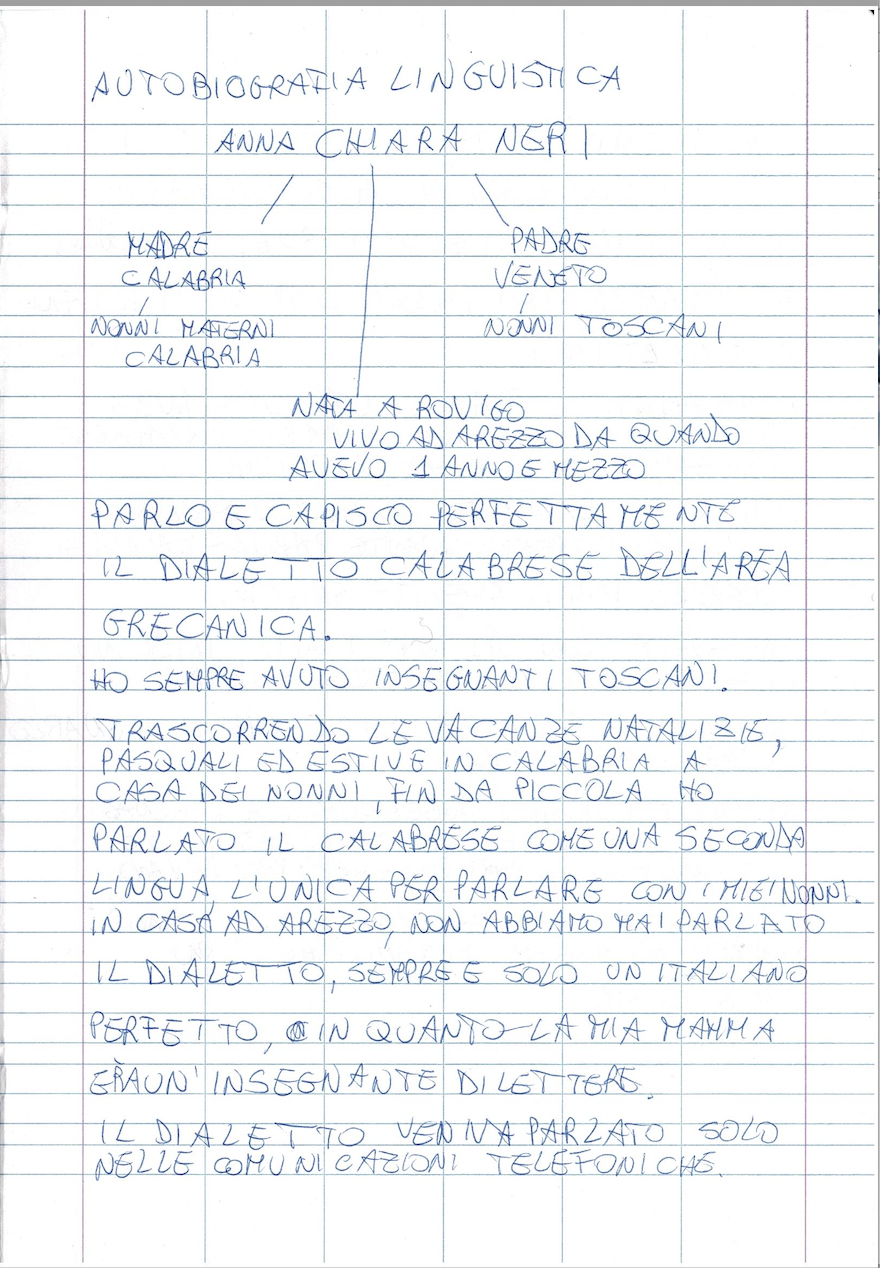 AUTOBIOGRAFIA LINGUISTICA
ANNA CHIARA NERI
MADRE
CALABRIA
NONNI MATERNI
CALABRIA
PADRE
VENETO
NONNI TOSCANI
NATA A ROVIGO
VIVO AD AREZZO DA QUANDO
AVEVO 1 ANNO E MEZZO
PARLO E CAPISCO PERFETTAMENTE
IL DIALETTO CALABRESE DELL'AREA
GRECANICA.
HO SEMPRE AVUTO INSEGNANTI TOSCANI.
TRASCORRENDO LE VACANZE NATALIZIE,
PASQUALI ED ESTIVE IN CALABRIA A
CASA DEI NONNI, FIN DA PICCOLA HO
PARLATO IL CALABRESE COME UNA SECONDA
LINGUA, L'UNICA PER PARLARE CON I MIEI NONNI.
IN CASA AD AREZZO, NON ABBIAMO MAI PARLATO
IL DIALETTO, SEMPRE E SOLO UN ITALIANO
PERFETTO, IN QUANTO LA MIA MAMMA
ERA UN' INSEGNANTE DI LETTERE.
IL DIALETTO VENIVA PARLATO SOLO
NELLE COMUNICAZIONI TELEFONICHE.